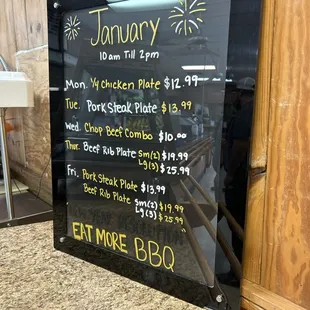 January
10am Till 2pm
Mon. ½ Chicken Plate $12.99
Tue. Pork Steak Plate $13.99
Wed. Chop Beef Combo $10.00
Thur. Beef Rib Plate Sm(2) $19.99
Lg(3) $25.99
Fri. Pork Steak Plate $13.99
Beef Rib Plate Sm(2) $19.99
Lg(3) $25.99
EAT MORE BBQ